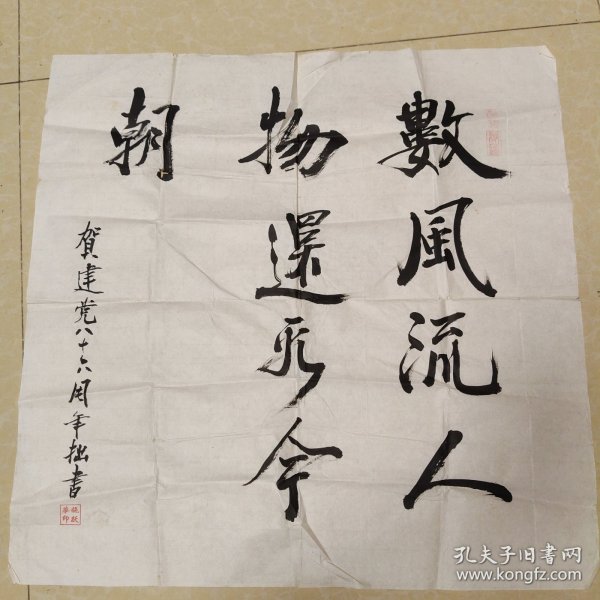 數風流人
物還看今
朝
賀建党八十六周年拙書
孔夫子旧书网
www.kongfz.com